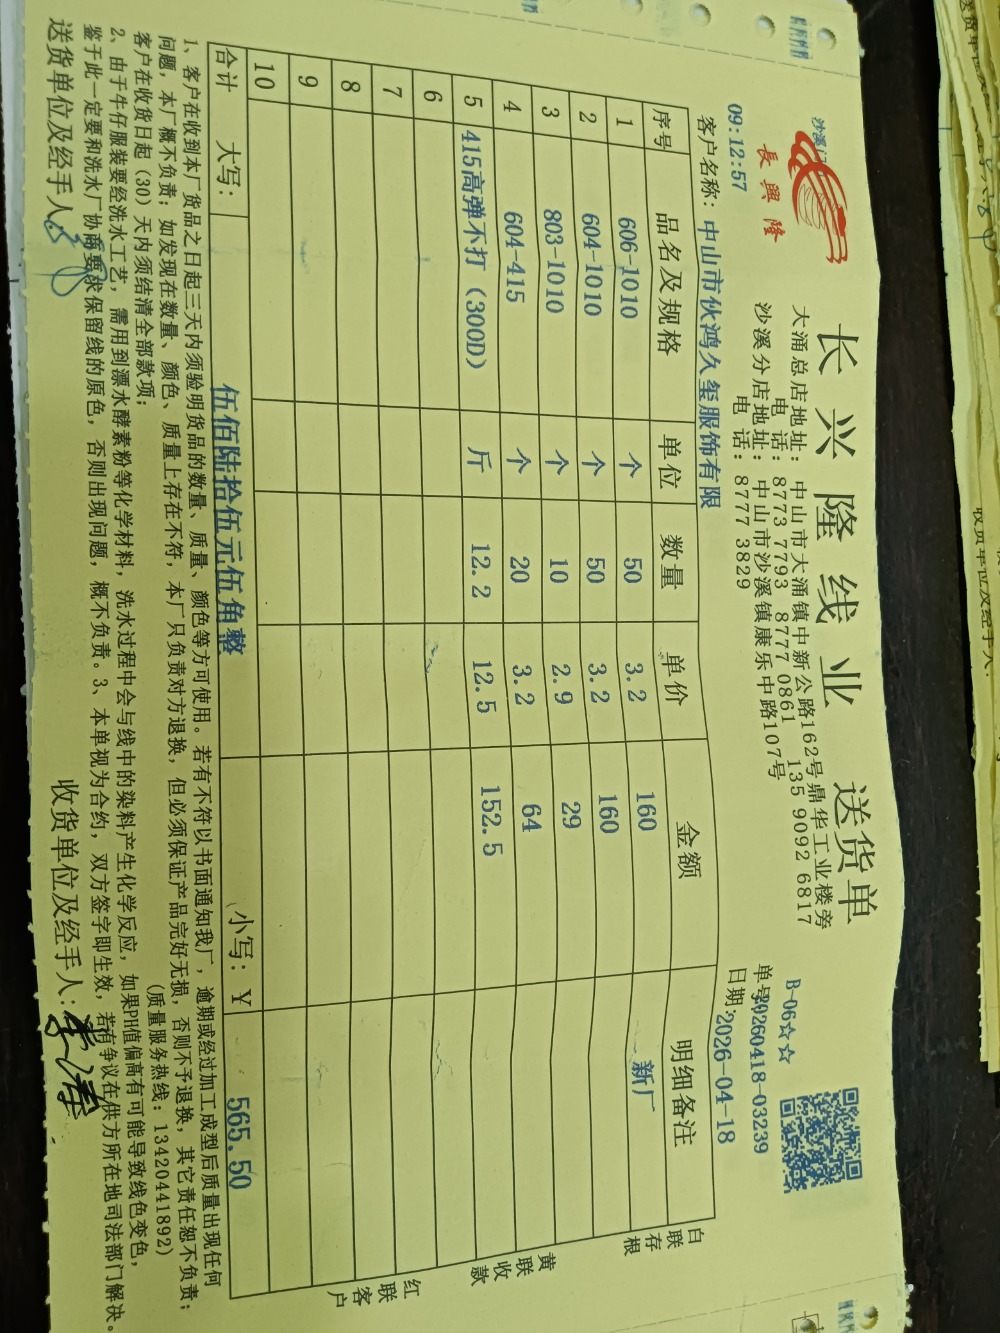 長興隆
长兴隆线业 送货单
大涌总店地址：中山市大涌镇中新公路162号鼎华工业楼旁
电话：8773 7793 8777 0861 135 9092 6817
沙溪分店地址：中山市沙溪镇康乐中路107号
电话：8777 3829
B-06☆☆
单号 20260418-03239
日期：2026-04-18
09:12:57
客户名称：中山市伙鸿久玺服饰有限
序号 品名及规格 单位 数量 单价 金额 明细备注
1 606-1010 个 50 3.2 160 新厂
2 604-1010 个 50 3.2 160
3 803-1010 个 10 2.9 29
4 604-415 个 20 3.2 64
5 415高弹不打（300D） 斤 12.2 12.5 152.5
6
7
8
9
10
合计 大写：伍佰陆拾伍元伍角整 小写：¥ 565.50
白联存根
黄联收款
红联客户
1、客户在收到本厂货品之日起三天内须验明货品的数量、质量、颜色等方可使用。若有不符以书面通知我厂，逾期或经过加工成型后质量出现任何
问题，本厂概不负责；如发现在数量、颜色、质量上存在不符，本厂只负责对方退换，但必须保证产品完好无损，否则不予退换，其它责任恕不负责；
客户在收货日起（30）天内须结清全部款项； （质量服务热线：13420441892）
2、由于牛仔服装要经洗水工艺，需用到漂水酵素粉等化学材料，洗水过程中会与线中的染料产生化学反应，如果PH值偏高有可能导致线色变色，
鉴于此一定要和洗水厂协商要求保留线的原色，否则出现问题，概不负责。3、本单视为合约，双方签字即生效，若有争议在供方所在地司法部门解决。
送货单位及经手人： 收货单位及经手人：